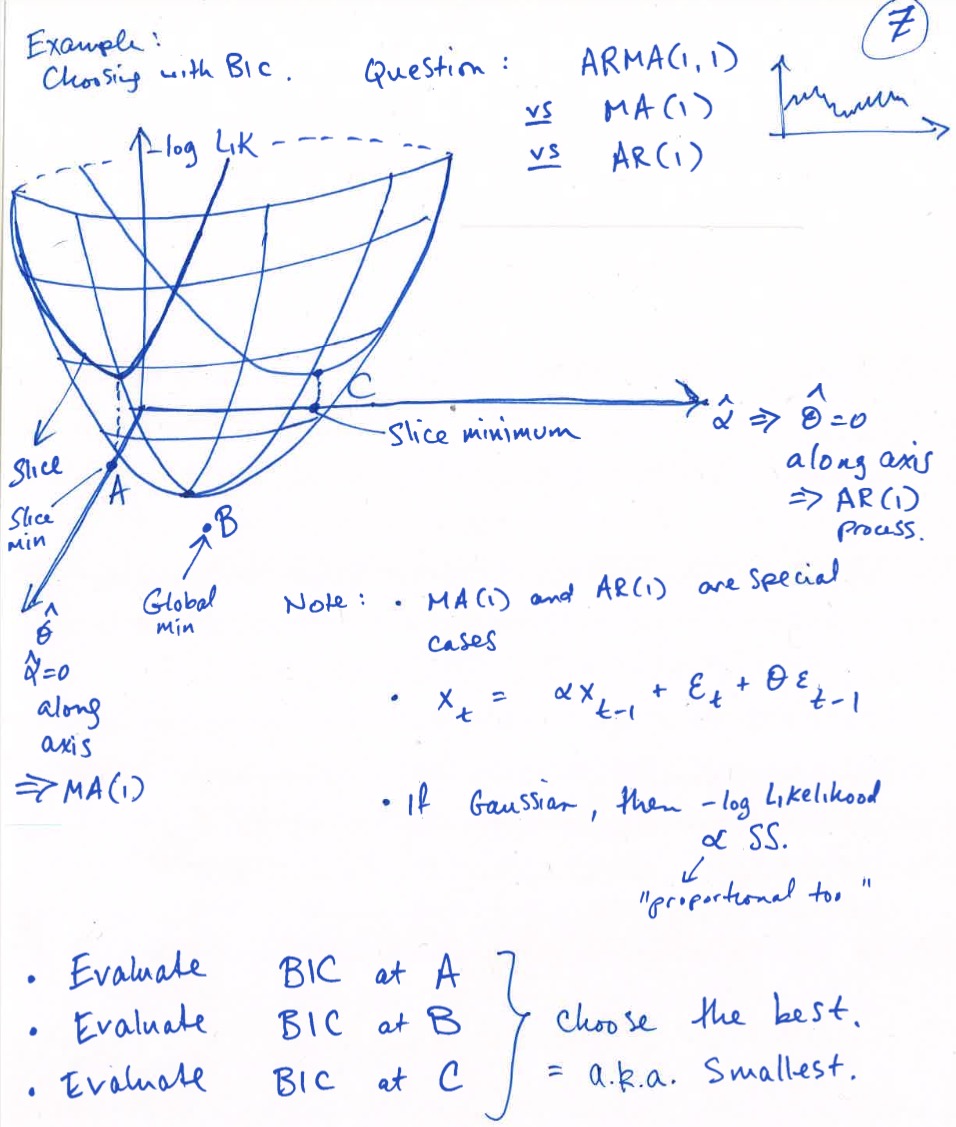 7
Example:
Choosing with BIC. Question: ARMA(1,1)
vs MA(1)
vs AR(1)
-log LIK
C
Slice minimum
α̂ ⇒ θ̂=0
along axis
⇒ AR(1)
process.
Slice
A
Slice
min
B
Global
min
θ̂
α̂=0
along
axis
⇒ MA(1)
Note: • MA(1) and AR(1) are special
cases
• X_t = αX_{t-1} + ε_t + θε_{t-1}
• If Gaussian, then -log Likelihood
∝ SS.
"proportional too"
• Evaluate BIC at A
• Evaluate BIC at B
• Evaluate BIC at C
choose the best.
= a.k.a. Smallest.